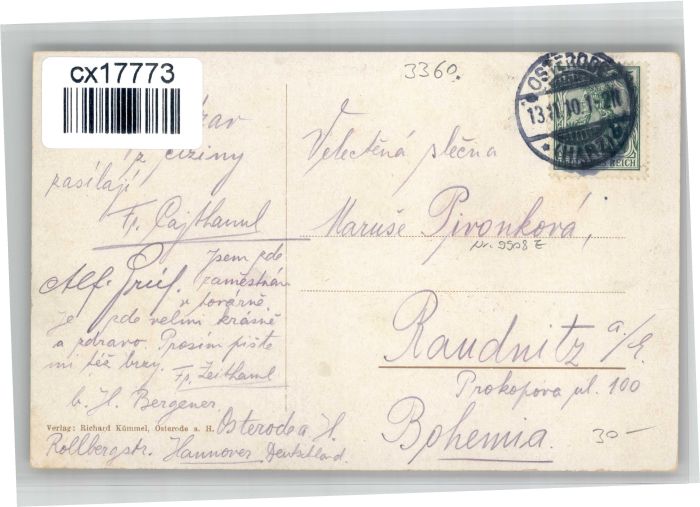 cx17773
3360.
OSTERODE
13.11.10.1-2N
* (HARZ) *
REICH
z ciziny
zasílají
Fr. Cajthaml
Velectěná slečna
Maruše Pivonková,
Nr. 9908 Z
Raudnitz a/E.
Prokopova ul. 100
Bohemia.
30-
Alf.
Jsem zde
zaměstnán
v továrně
Je zde velmi krásně
a zdravo. Prosim pište
mi též brzy. Fr. Zeithaml
b. H. Bergener
Verlag: Richard Kümmel, Osterode a. H.
Osterode a H.
Rollbergstr. Hannover Deutschland.